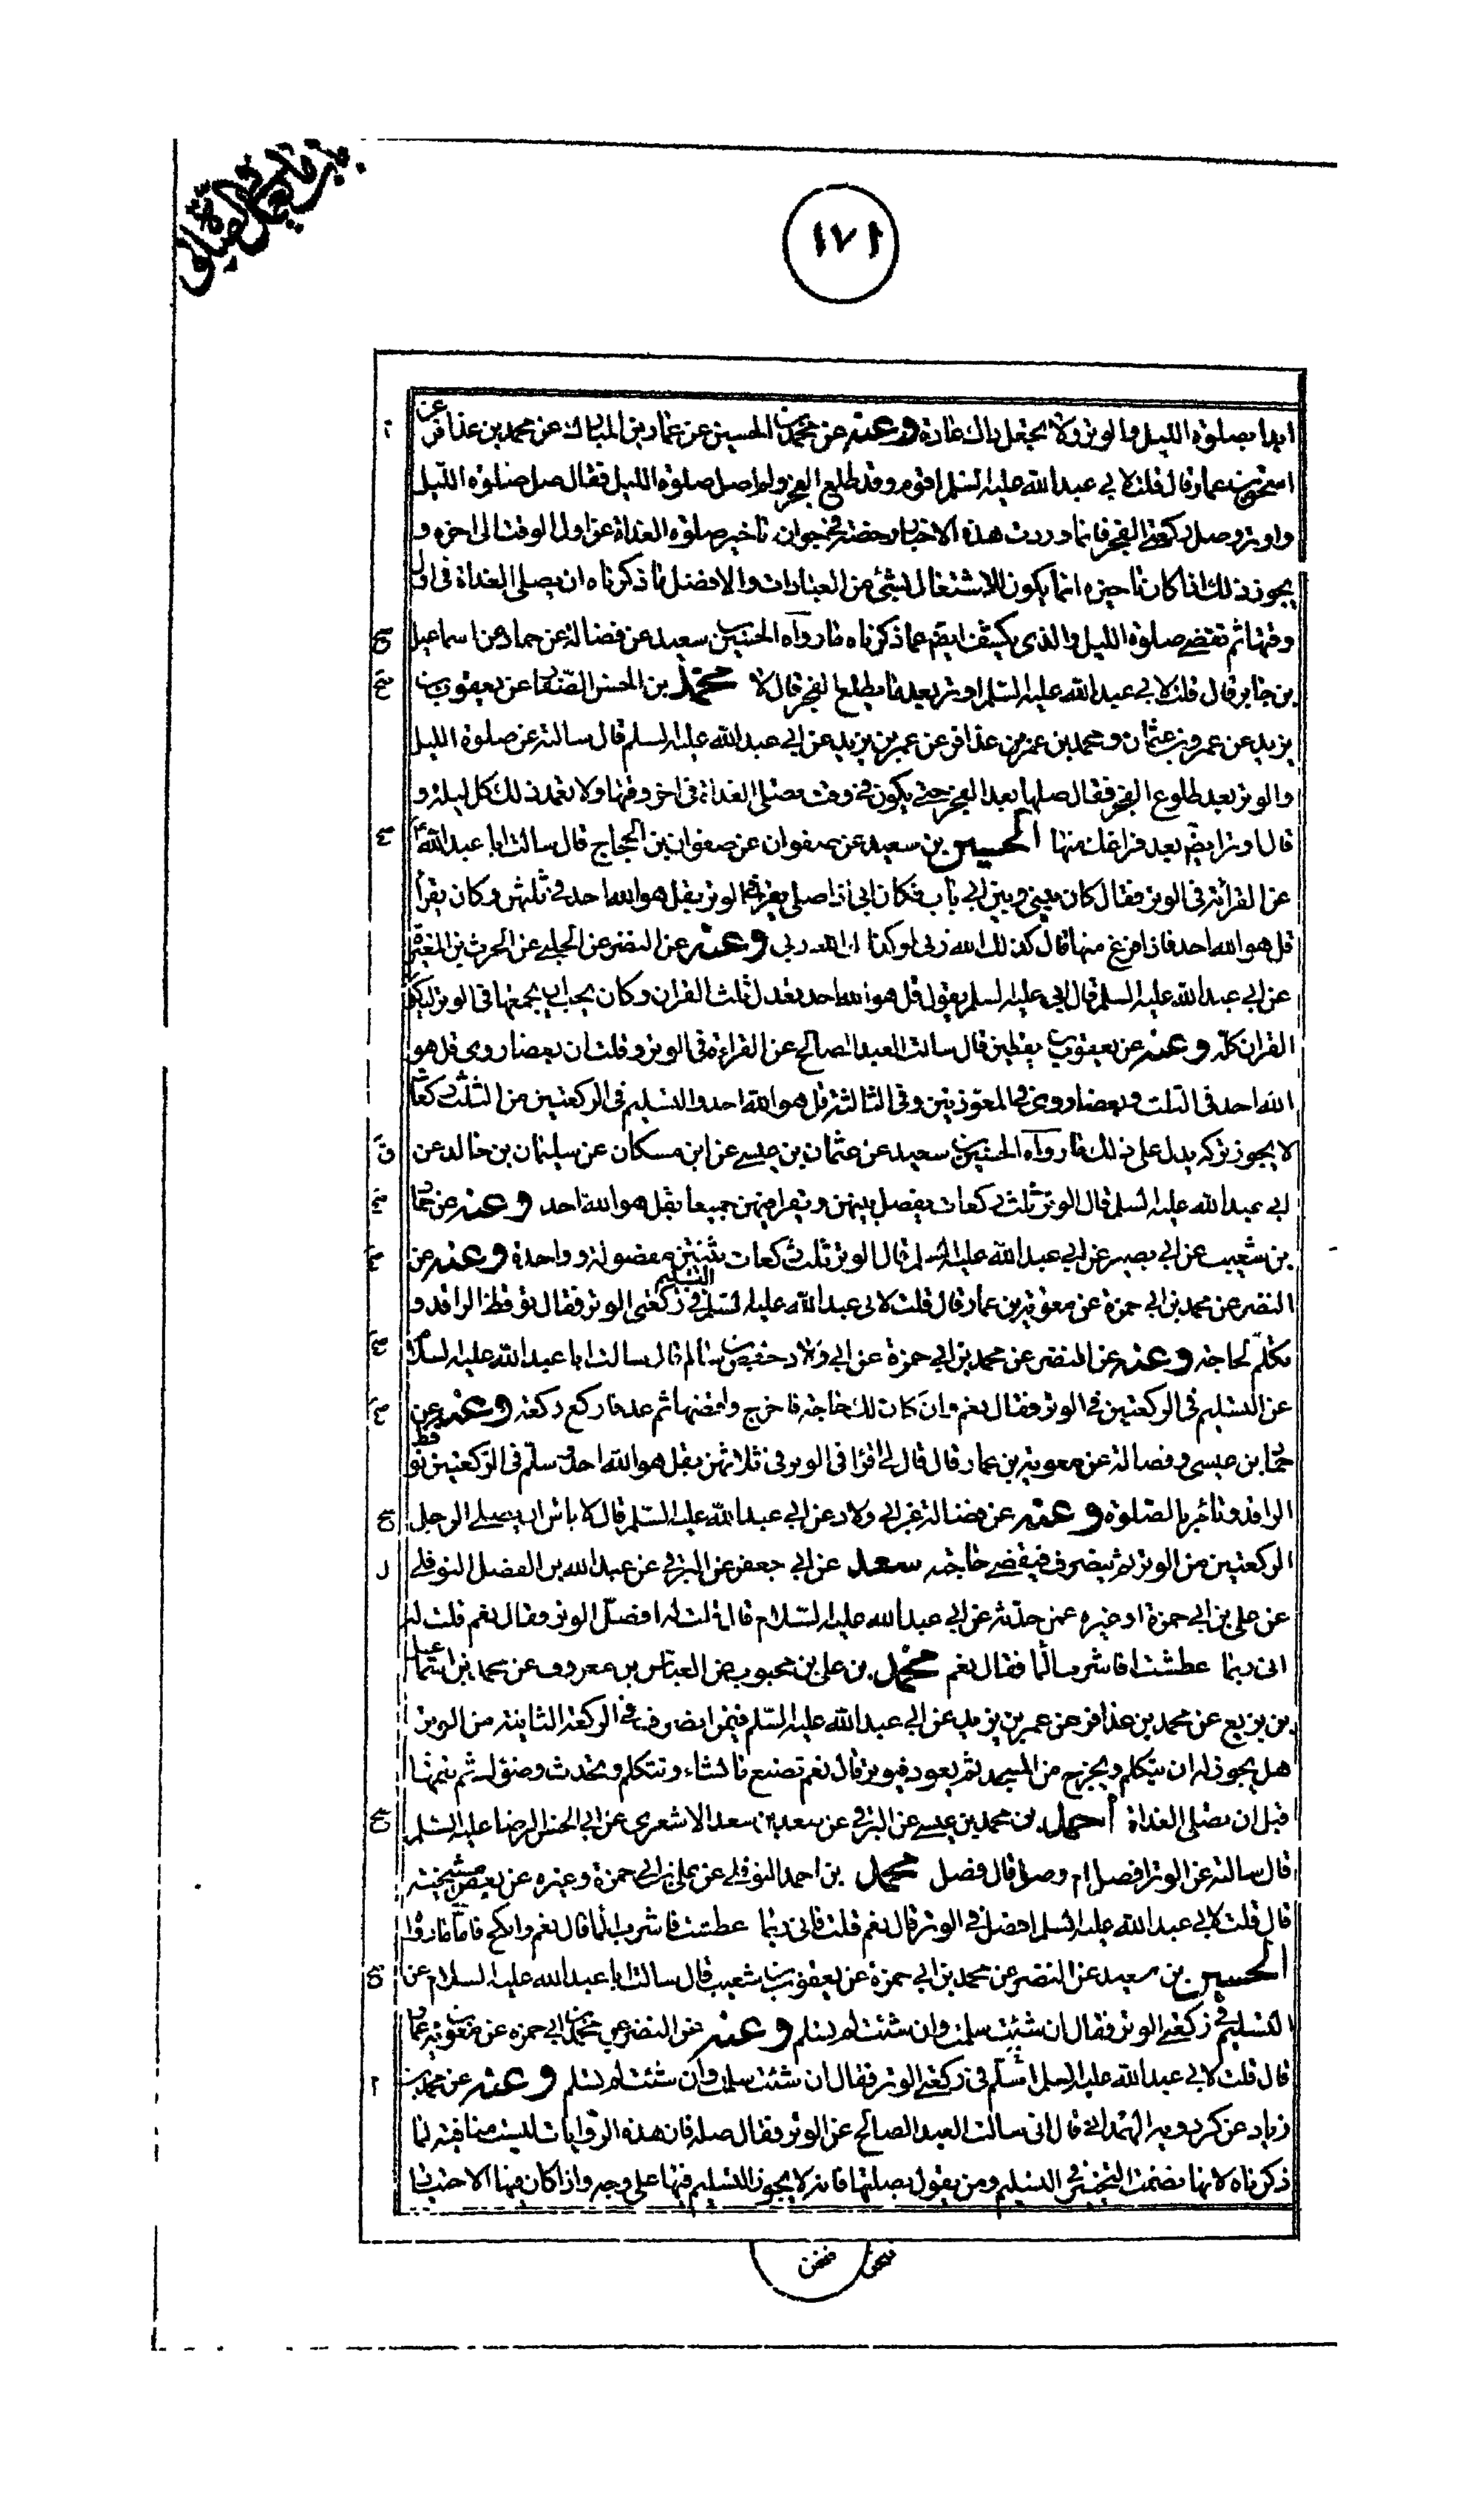 ١٧١
ابدا بصلوة الليل والوتر ولا تجعل ذلك عادة وعنه عن محمد بن الحسين عن عمار بن المبارك عن محمد بن عذافر عن
اسحق بن عمار قال قلت لابي عبد الله عليه السلم اقوم وقد طلع الفجر ولم اصل صلوة الليل فقال صل صلوة الليل
واوتر وصل ركعتي الفجر فانما وردت هذه الاخبار رخصة في جواز تاخير صلوة الغداة عن اول الوقت الى اخره و
يجوز ذلك اذا كان تاخيره انما يكون للاشتغال بشئ من العبادات والافضل ما ذكرناه ان يصلى الغداة في اول
وقتها ثم تقضي صلوة الليل والذى يكشف ايضا عما ذكرناه ما رواه الحسين بن سعيد عن فضالة عن حماد عن اسماعيل
بن جابر قال قلت لابي عبد الله عليه السلم اوتر بعد ما يطلع الفجر قال لا محمد بن الحسن الصفار عن يعقوب بن
يزيد عن عمرو بن عثمان ومحمد بن عمر بن عذافر عن عمر بن يزيد عن ابي عبد الله عليه السلم قال سالته عن صلوة الليل
والوتر بعد طلوع الفجر فقال صلها بعد الفجر حتى يكون في وقت تصلى الغداة في اخر وقتها ولا تعمد ذلك كل ليلة و
قال اوتر ايضا بعد فراغك منها الحسين بن سعيد عن صفوان عن صفوان بن الحجاج قال سالت ابا عبد الله ع
عن القرائة في الوتر فقال كان بيني وبين ابي باب فكان ابي اذا صلى يقرا في الوتر بقل هو الله احد في ثلثهن وكان يقرأ
قل هو الله احد فاذا فرغ منها قال كذلك الله ربى او كذا ان الله ربى وعنه عن النضر عن الحلبي عن الحرث بن المغيرة
عن ابي عبد الله عليه السلم قال ابي عليه السلم يقول قل هو الله احد تعدل ثلث القران وكان يحب ان يجمعها في الوتر ليكون
القران كله وعنه عن يعقوب بن يقطين قال سالت العبد الصالح عن القراءة في الوتر وقلت ان بعضا روى قل هو
الله احد في الثلث وبعضا روى في المعوذتين وفي الثالثة قل هو الله احد والتسليم في الركعتين من الثلث ركعات
لا يجوز تركه يدل على ذلك ما رواه الحسين بن سعيد عن عثمان بن عيسى عن ابن مسكان عن سليمان بن خالد عن
ابي عبد الله عليه السلم قال الوتر ثلث ركعات يفصل بينهن ويقرا فيهن جميعا بقل هو الله احد وعنه عن حماد
بن شعيب عن ابي بصير عن ابي عبد الله عليه السلم قال الوتر ثلث ركعات ثنتين مفصولة وواحدة وعنه عن
النضر عن محمد بن ابي حمزة عن معوية بن عمار قال قلت لابي عبد الله عليه السلم التسليم في ركعتي الوتر فقال توقظ الراقد و
تكلم لحاجة وعنه عن النضر عن محمد بن ابي حمزة عن ابي ولاد حفص بن سالم قال سالت ابا عبد الله عليه السلام
عن التسليم في الركعتين في الوتر فقال نعم وان كان لك حاجة فاخرج واقضها ثم عد فاركع ركعة وعنه عن
حماد بن عيسى وفضالة عن معوية بن عمار قال قال لي اقرا في الوتر في ثلاثهن بقل هو الله احد وسلم في الركعتين توقظ
الراقد وتأمر بالصلوة وعنه عن فضالة عن ابي ولاد عن ابي عبد الله عليه السلم قال لا باس ان يصلي الرجل
الركعتين من الوتر ثم ينصرف فيقضي حاجته سعد عن ابي جعفر عن البرقي عن عبد الله بن الفضل النوفلي
عن علي بن ابي حمزة او غيره عمن حدثه عن ابي عبد الله عليه السلام قال قلت له افصل الوتر فقال نعم قلت له
اني ربما عطشت افاشرب الماء فقال نعم محمد بن علي بن محبوب عن العباس بن معروف عن محمد بن اسماعيل
بن بزيع عن محمد بن عذافر عن عمر بن يزيد عن ابي عبد الله عليه السلم فيمن انصرف في الركعة الثانية من الوتر
هل يجوز له ان يتكلم ويخرج من المسجد ثم يعود فيوتر قال نعم تصنع ما تشاء وتتكلم وتحدث وضوئك ثم تتمها
قبل ان تصلى الغداة احمد بن محمد بن عيسى عن البرقي عن سعد بن سعد الاشعرى عن ابي الحسن الرضا عليه السلم
قال سالته عن الوتر افصل ام وصل قال فصل محمد بن احمد النوفلي عن علي بن ابي حمزة وغيره عن بعض مشيخته
قال قلت لابي عبد الله عليه السلم افصل في الوتر قال نعم قلت فاني ربما عطشت فاشرب الماء قال نعم وانكح فاما ما رواه
الحسين بن سعيد عن النضر عن محمد بن ابي حمزة عن يعقوب بن شعيب قال سالت ابا عبد الله عليه السلام عن
التسليم في ركعتي الوتر فقال ان شئت سلمت وان شئت لم تسلم وعنه عن النضر عن محمد بن ابي حمزه عن معوية بن عمار
قال قلت لابي عبد الله عليه السلم اسلم في ركعتي الوتر فقال ان شئت سلمت وان شئت لم تسلم وعنه عن محمد بن
زياد عن كردويه الهمداني قال اني سالت العبد الصالح عن الوتر فقال صله فان هذه الروايات ليست منافية لما
ذكرناه لانها تضمنت التخيير في التسليم ومن يقول بصلتها فانه لا يجوز التسليم فيها على وجه واذا كان فيها الاختيار
فنحن